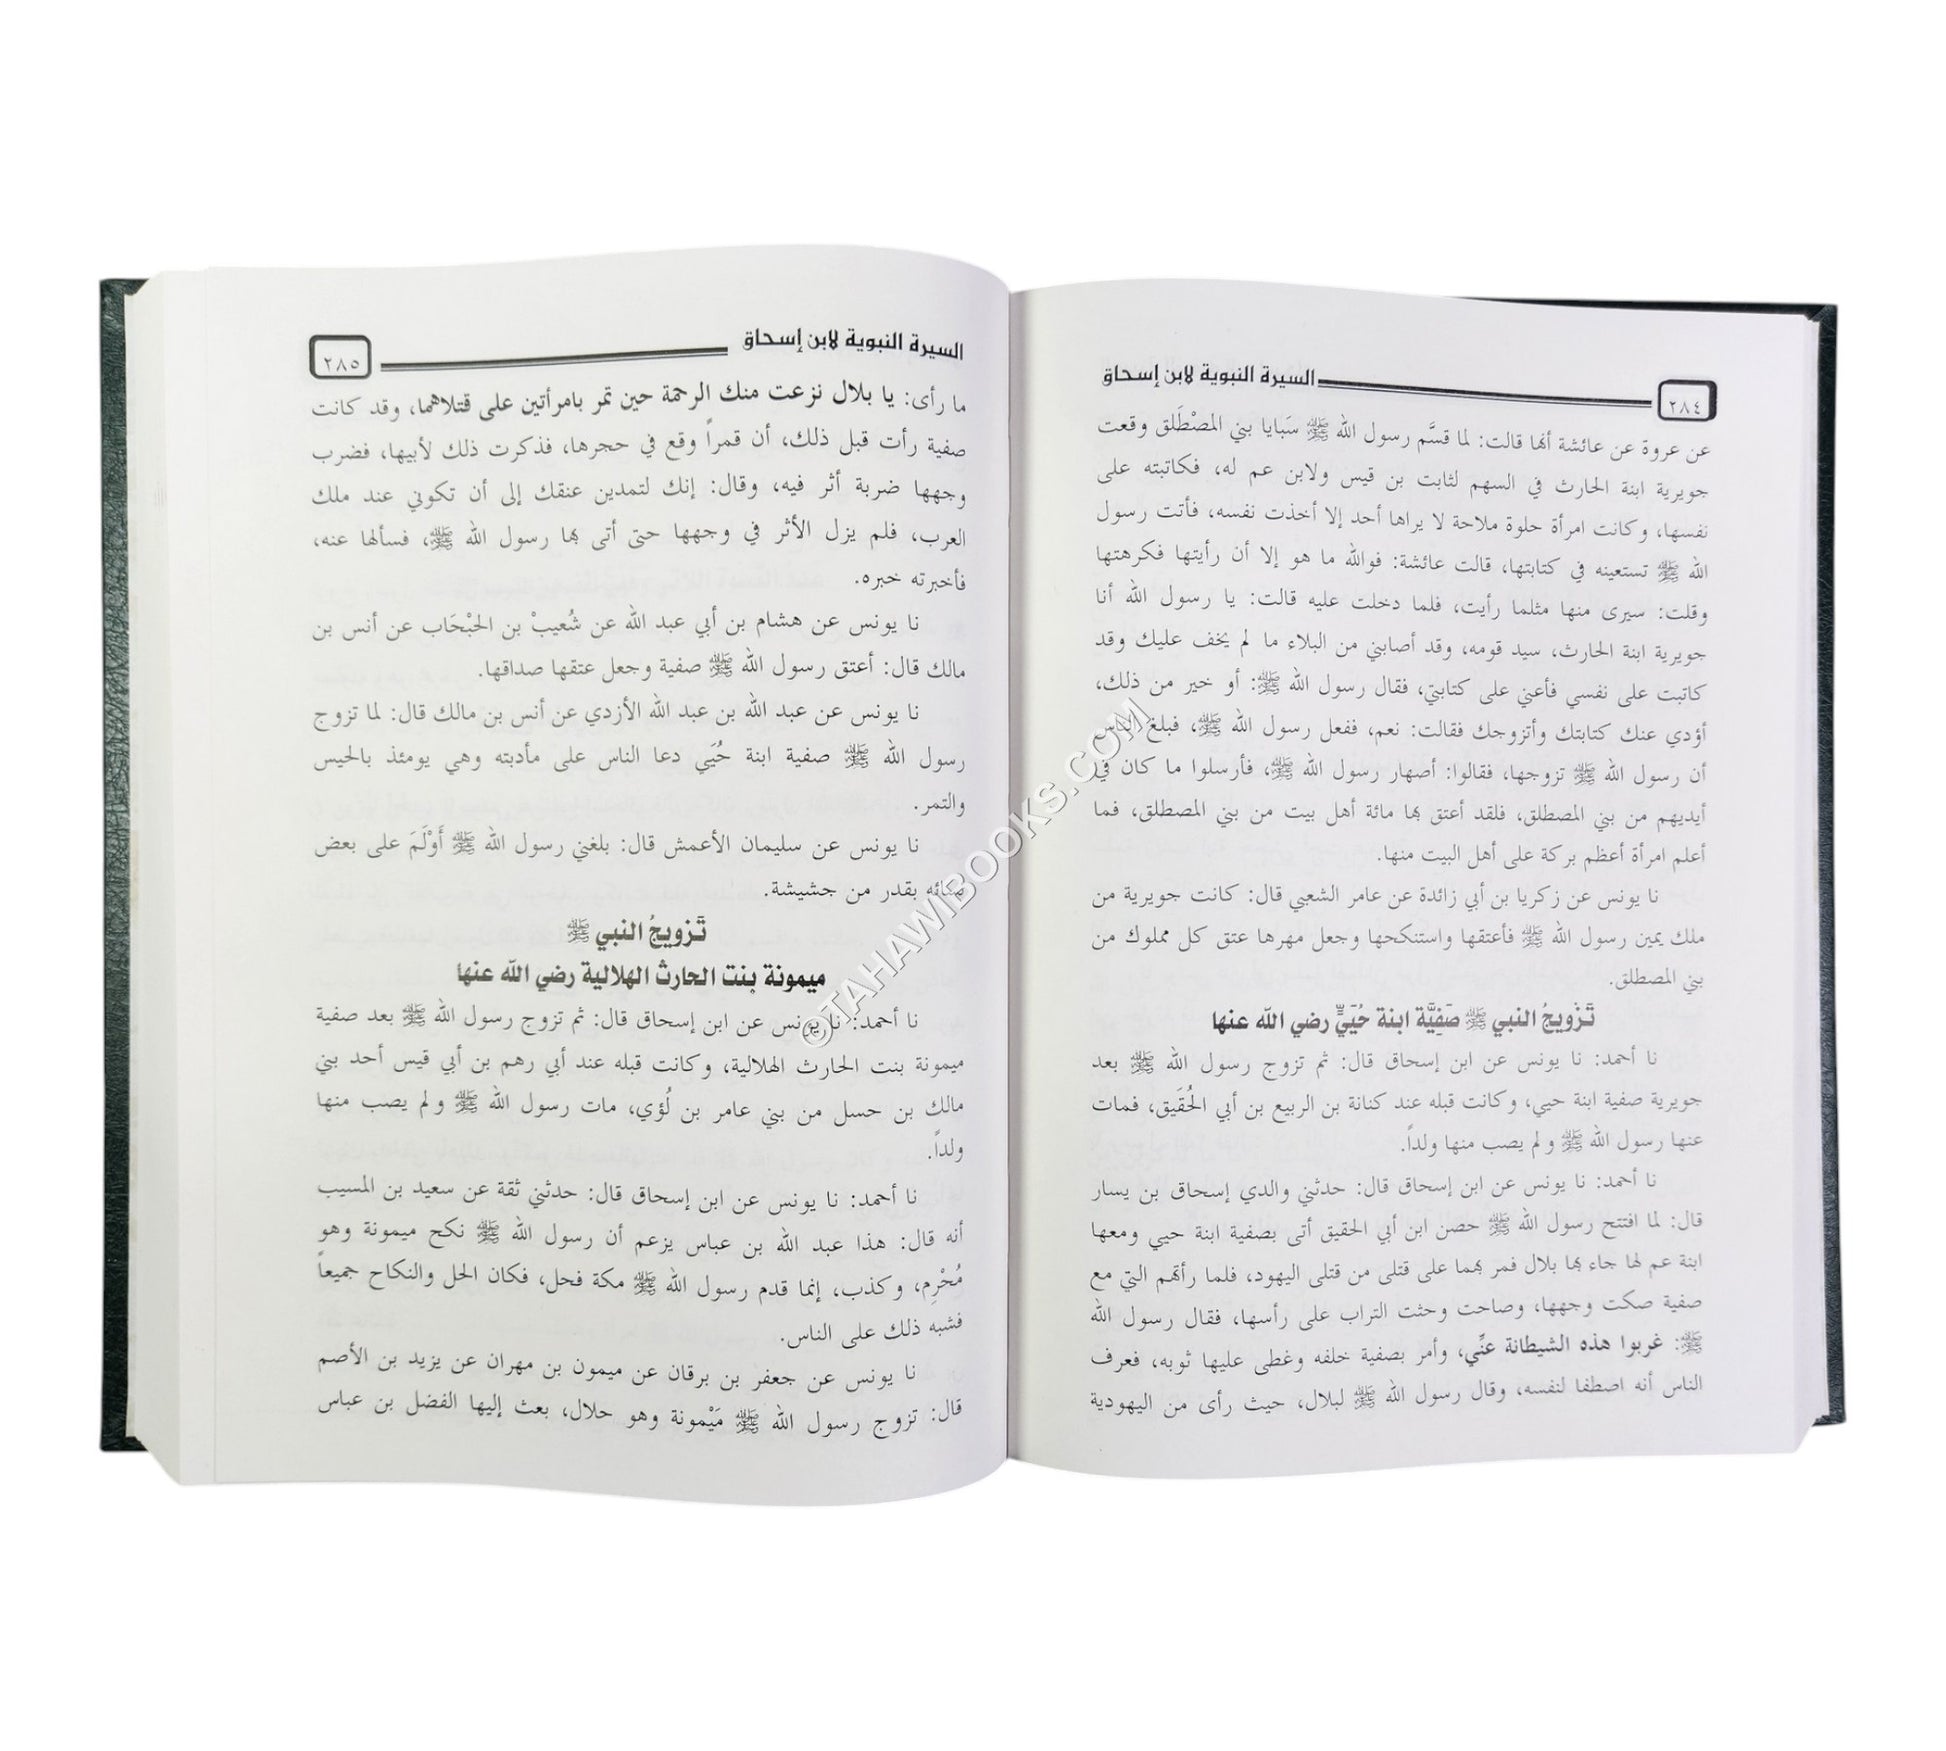 السيرة النبوية لابن إسحاق
٢٨٤
عن عروة عن عائشة أنها قالت: لما قسَّم رسول الله ﷺ سَبايا بني المصْطَلق وقعت
جويرية ابنة الحارث في السهم لثابت بن قيس ولابن عم له، فكاتبته على
نفسها، وكانت امرأة حلوة ملاحة لا يراها أحد إلا أخذت نفسه، فأتت رسول
الله ﷺ تستعينه في كتابتها، قالت عائشة: فوالله ما هو إلا أن رأيتها فكرهتها
وقلت: سيرى منها مثلما رأيت، فلما دخلت عليه قالت: يا رسول الله أنا
جويرية ابنة الحارث، سيد قومه، وقد أصابني من البلاء ما لم يخف عليك وقد
كاتبت على نفسي فأعني على كتابتي، فقال رسول الله ﷺ: أو خير من ذلك،
أؤدي عنك كتابتك وأتزوجك فقالت: نعم، ففعل رسول الله ﷺ، فبلغ الناس
أن رسول الله ﷺ تزوجها، فقالوا: أصهار رسول الله ﷺ، فأرسلوا ما كان في
أيديهم من بني المصطلق، فلقد أعتق بها مائة أهل بيت من بني المصطلق، فما
أعلم امرأة أعظم بركة على أهل البيت منها.
نا يونس عن زكريا بن أبي زائدة عن عامر الشعبي قال: كانت جويرية من
ملك يمين رسول الله ﷺ فأعتقها واستنكحها وجعل مهرها عتق كل مملوك من
بني المصطلق.
تَزْويجُ النبي ﷺ صَفِيَّة ابنة حُيَيٍّ رضي الله عنها
نا أحمد: نا يونس عن ابن إسحاق قال: ثم تزوج رسول الله ﷺ بعد
جويرية صفية ابنة حيي، وكانت قبله عند كنانة بن الربيع بن أبي الحُقَيق، فمات
عنها رسول الله ﷺ ولم يصب منها ولداً.
نا أحمد: نا يونس عن ابن إسحاق قال: حدثني والدي إسحاق بن يسار
قال: لما افتتح رسول الله ﷺ حصن ابن أبي الحقيق أتى بصفية ابنة حيي ومعها
ابنة عم لها جاء بها بلال فمر بهما على قتلى من قتلى اليهود، فلما رأتهم التي مع
صفية صكت وجهها، وصاحت وحثت التراب على رأسها، فقال رسول الله
ﷺ: غربوا هذه الشيطانة عنِّي، وأمر بصفية خلفه وغطى عليها ثوبه، فعرف
الناس أنه اصطفا لنفسه، وقال رسول الله ﷺ لبلال، حيث رأى من اليهودية
السيرة النبوية لابن إسحاق
٢٨٥
ما رأى: يا بلال نزعت منك الرحمة حين تمر بامرأتين على قتلاهما، وقد كانت
صفية رأت قبل ذلك، أن قمراً وقع في حجرها، فذكرت ذلك لأبيها، فضرب
وجهها ضربة أثر فيه، وقال: إنك لتمدين عنقك إلى أن تكوني عند ملك
العرب، فلم يزل الأثر في وجهها حتى أتى بها رسول الله ﷺ، فسألها عنه،
فأخبرته خبره.
نا يونس عن هشام بن أبي عبد الله عن شُعيبْ بن الحَبْحَاب عن أنس بن
مالك قال: أعتق رسول الله ﷺ صفية وجعل عتقها صداقها.
نا يونس عن عبد الله بن عبد الله الأزدي عن أنس بن مالك قال: لما تزوج
رسول الله ﷺ صفية ابنة حُيَي دعا الناس على مأدبته وهي يومئذ بالحيس
والتمر.
نا يونس عن سليمان الأعمش قال: بلغني رسول الله ﷺ أَوْلَمَ على بعض
نسائه بقدر من جشيشة.
تَزويجُ النبي ﷺ
ميمونة بنت الحارث الهلالية رضي الله عنها
نا أحمد: نا يونس عن ابن إسحاق قال: ثم تزوج رسول الله ﷺ بعد صفية
ميمونة بنت الحارث الهلالية، وكانت قبله عند أبي رهم بن أبي قيس أحد بني
مالك بن حسل من بني عامر بن لُؤي، مات رسول الله ﷺ ولم يصب منها
ولداً.
نا أحمد: نا يونس عن ابن إسحاق قال: حدثني ثقة عن سعيد بن المسيب
أنه قال: هذا عبد الله بن عباس يزعم أن رسول الله ﷺ نكح ميمونة وهو
مُحْرِم، وكذب، إنما قدم رسول الله ﷺ مكة فحل، فكان الحل والنكاح جميعاً
فشبه ذلك على الناس.
نا يونس عن جعفر بن برقان عن ميمون بن مهران عن يزيد بن الأصم
قال: تزوج رسول الله ﷺ مَيْمونة وهو حلال، بعث إليها الفضل بن عباس
©TAHAWIBOOKS.COM